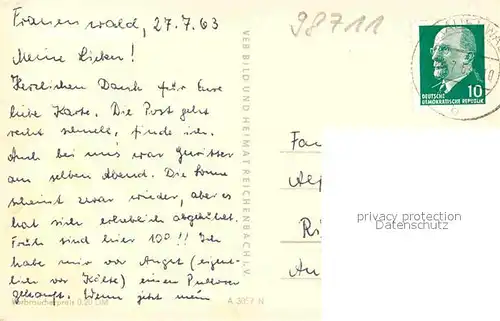 Frauenwald, 27.7.63
98711
Meine Lieben!
Herzlichen Dank für Eure
liebe Karte. Die Post geht
recht schnell, finde ich.
Auch bei uns war Gewitter
am selben Abend. Die Sonne
scheint zwar wieder, aber es
hat sich erheblich abgekühlt.
Früh sind hier 10°!! Ich
habe mir vor Angst (eigent-
lich vor Kälte) einen Pullover
gekauft. Wenn jetzt mein
Verbraucherpreis 0.20 DM
A 3057 N
VEB BILD UND HEIMAT REICHENBACH I. V.
10
DEUTSCHE
DEMOKRATISCHE REPUBLIK
Fa
Ri
Au
privacy protection
Datenschutz